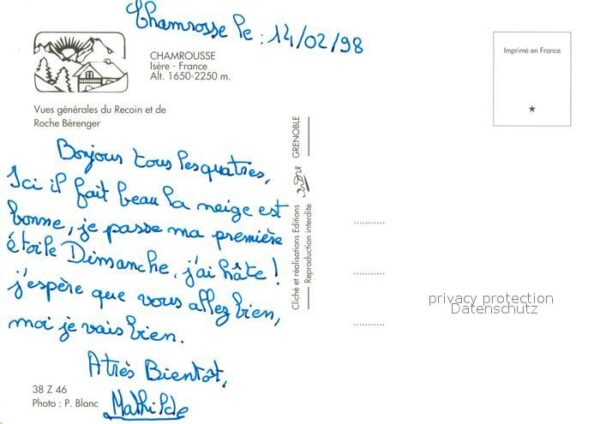 Chamrosse le : 14/02/98
CHAMROUSSE
Isère - France
Alt. 1650-2250 m.
Imprimé en France
Vues générales du Recoin et de
Roche Bérenger
Bonjour tous les quatres,
Ici il fait beau la neige est
bonne, je passe ma première
étoile Dimanche, j'ai hâte !
j'espère que vous allez bien,
moi je vais bien.
A très Bientôt,
Mathilde
38 Z 46
Photo : P. Blanc
Cliché et réalisations Editions GRENOBLE
Reproduction interdite
privacy protection
Datenschutz